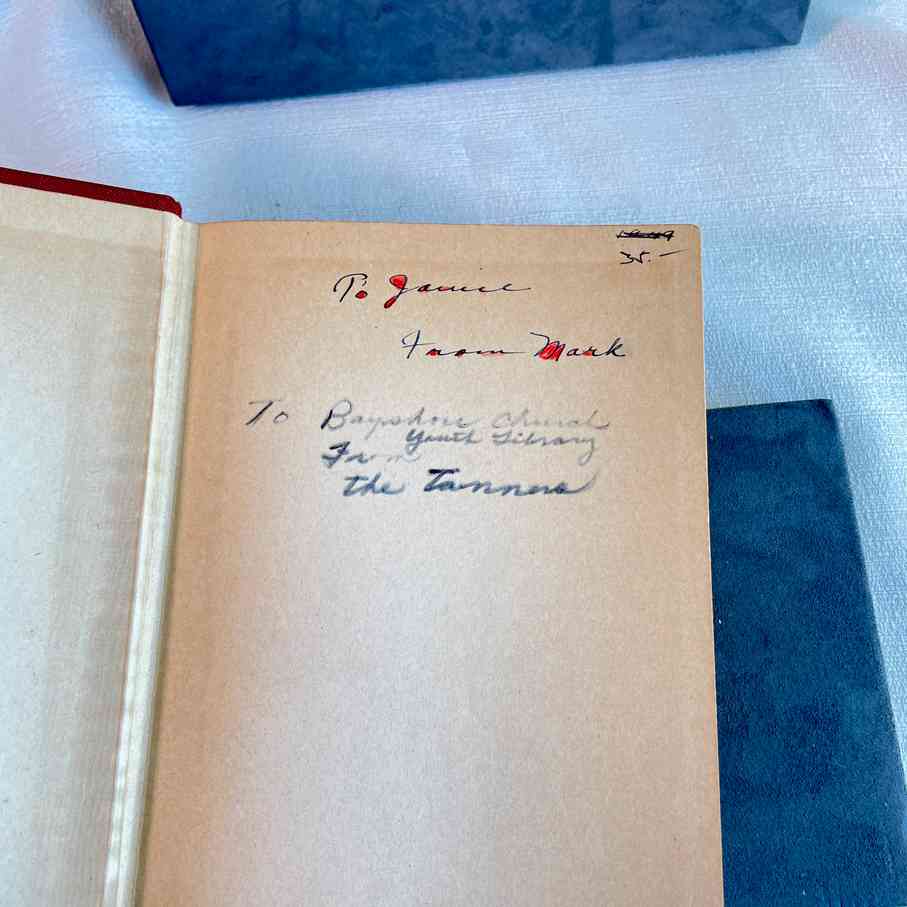 35.-
To Janice
From Mark
To Bayshore Church
Youth Library
From
the Tanners